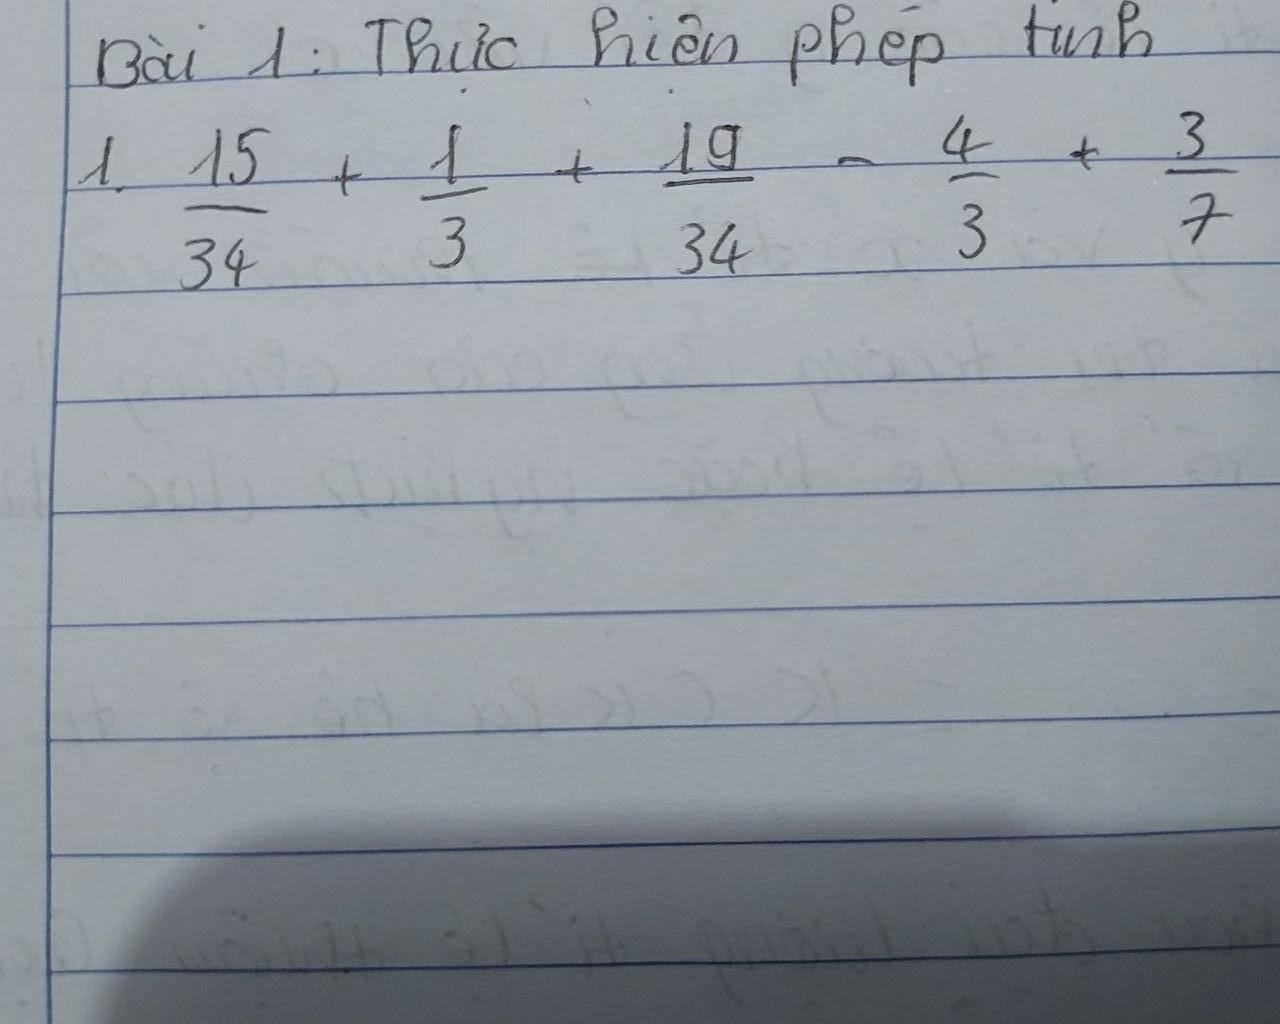 Bài 1: Thực hiện phép tính
1. 15/34 + 1/3 + 19/34 - 4/3 + 3/7